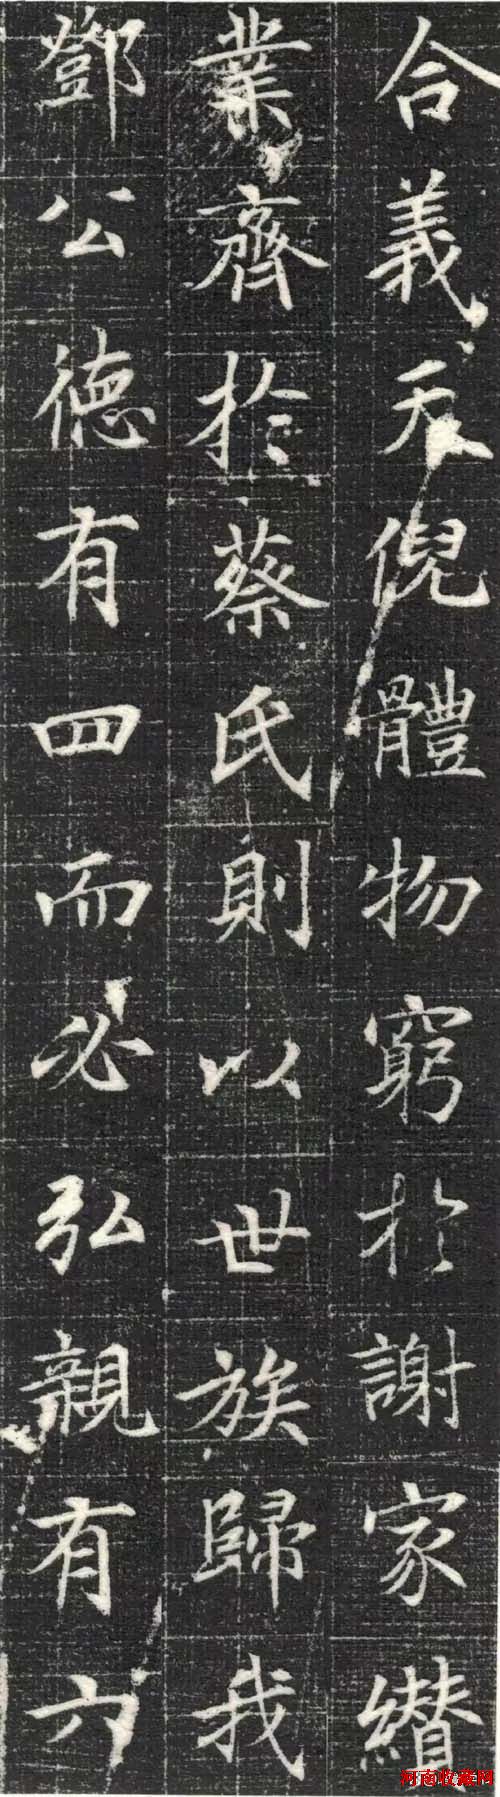 合義天倪體物窮於謝家纘
業齊於蔡氏則以世族歸我
鄧公德有四而必弘親有六
河南收藏网